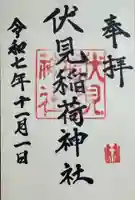 奉拝
伏見稲荷神社
令和七年十一月一日
伏見